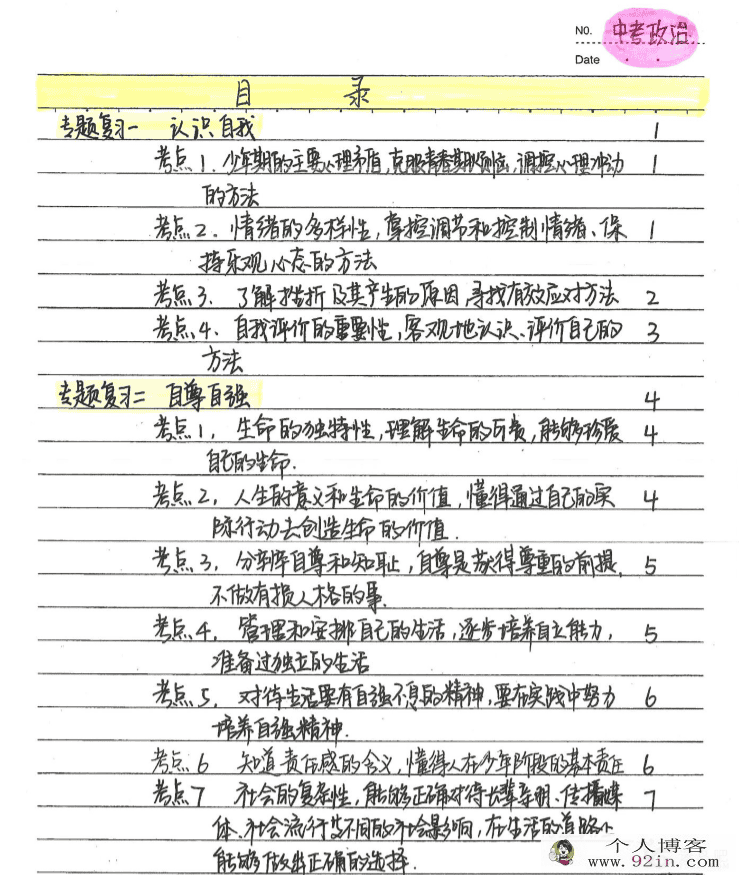 No. 中考政治
Date
目 录
专题复习一 认识自我 1
考点1. 少年期的主要心理矛盾,克服青春期烦恼,调控心理冲动 1
的方法
考点2. 情绪的多样性,掌控调节和控制情绪、保 1
持乐观心态的方法
考点3. 了解挫折及其产生的原因,寻找有效应对方法 2
考点4. 自我评价的重要性,客观地认识、评价自己的 3
方法
专题复习二 自尊自强 4
考点1, 生命的独特性,理解生命的可贵,能够珍爱 4
自己的生命.
考点2, 人生的意义和生命的价值,懂得通过自己的实 4
际行动去创造生命的价值.
考点3, 分辨自尊和知耻,自尊是获得尊重的前提, 5
不做有损人格的事.
考点4, 管理和安排自己的生活,逐步培养自立能力, 5
准备过独立的生活
考点5, 对待生活要有自强不息的精神,要在实践中努力 6
培养自强精神.
考点6 知道责任感的含义,懂得人在少年阶段的基本责任 6
考点7 社会的复杂性,能够正确对待长辈亲朋、传播媒 7
体、社会流行等不同的社会影响,在生活的道路上
能够做出正确的选择.
个人博客
www.92in.com